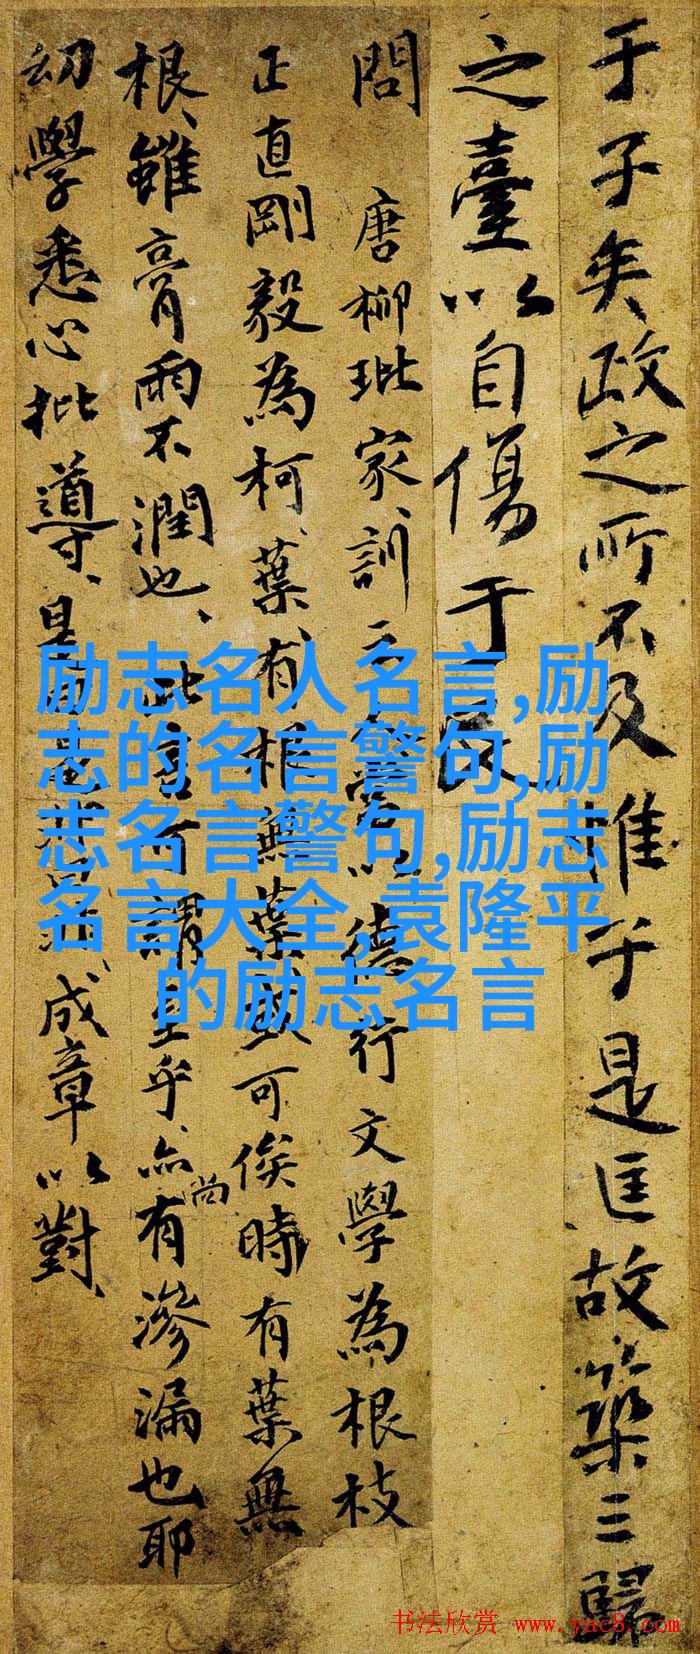 于子矣政之所不及惟于是匡故築三歸
之臺以自傷于民
問 唐柳玭家訓云以德行文學為根枝
正直剛毅為柯葉有根無葉或可俟時有葉無
根雖膏雨不潤也此言可謂至乎亦尚有滲漏也耶
幼學悉心批導是成章以對
励志名人名言,励
志的名言警句,励
志名言警句,励志
名言大全,袁隆平
的励志名言
书法欣赏 www.yac8.com